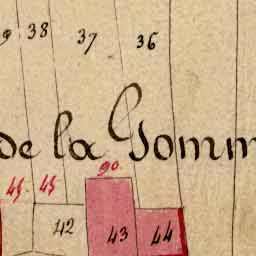 9 38 37 36
de la Gomm
45 45 90
42 43 44